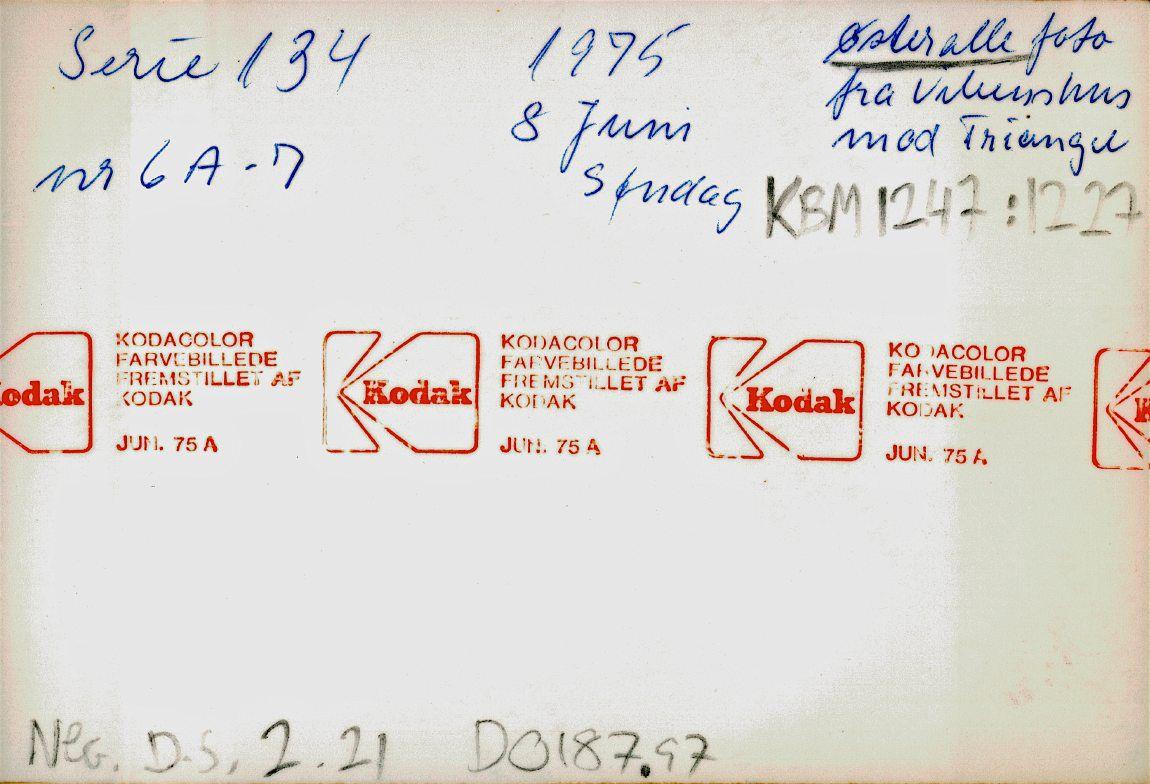 Serie 134
nr 6A-7
1975
8 Juni
Søndag
østeralle foto
fra Vibenshus
mod Triangel
KBM 1247:1227
Kodak
KODACOLOR
FARVEBILLEDE
FREMSTILLET AF
KODAK
JUN. 75 A
Kodak
KODACOLOR
FARVEBILLEDE
FREMSTILLET AF
KODAK
JUN. 75 A
Kodak
KODACOLOR
FARVEBILLEDE
FREMSTILLET AF
KODAK
JUN. 75 A
K
Neg. D.S. 2.21 DO187.97